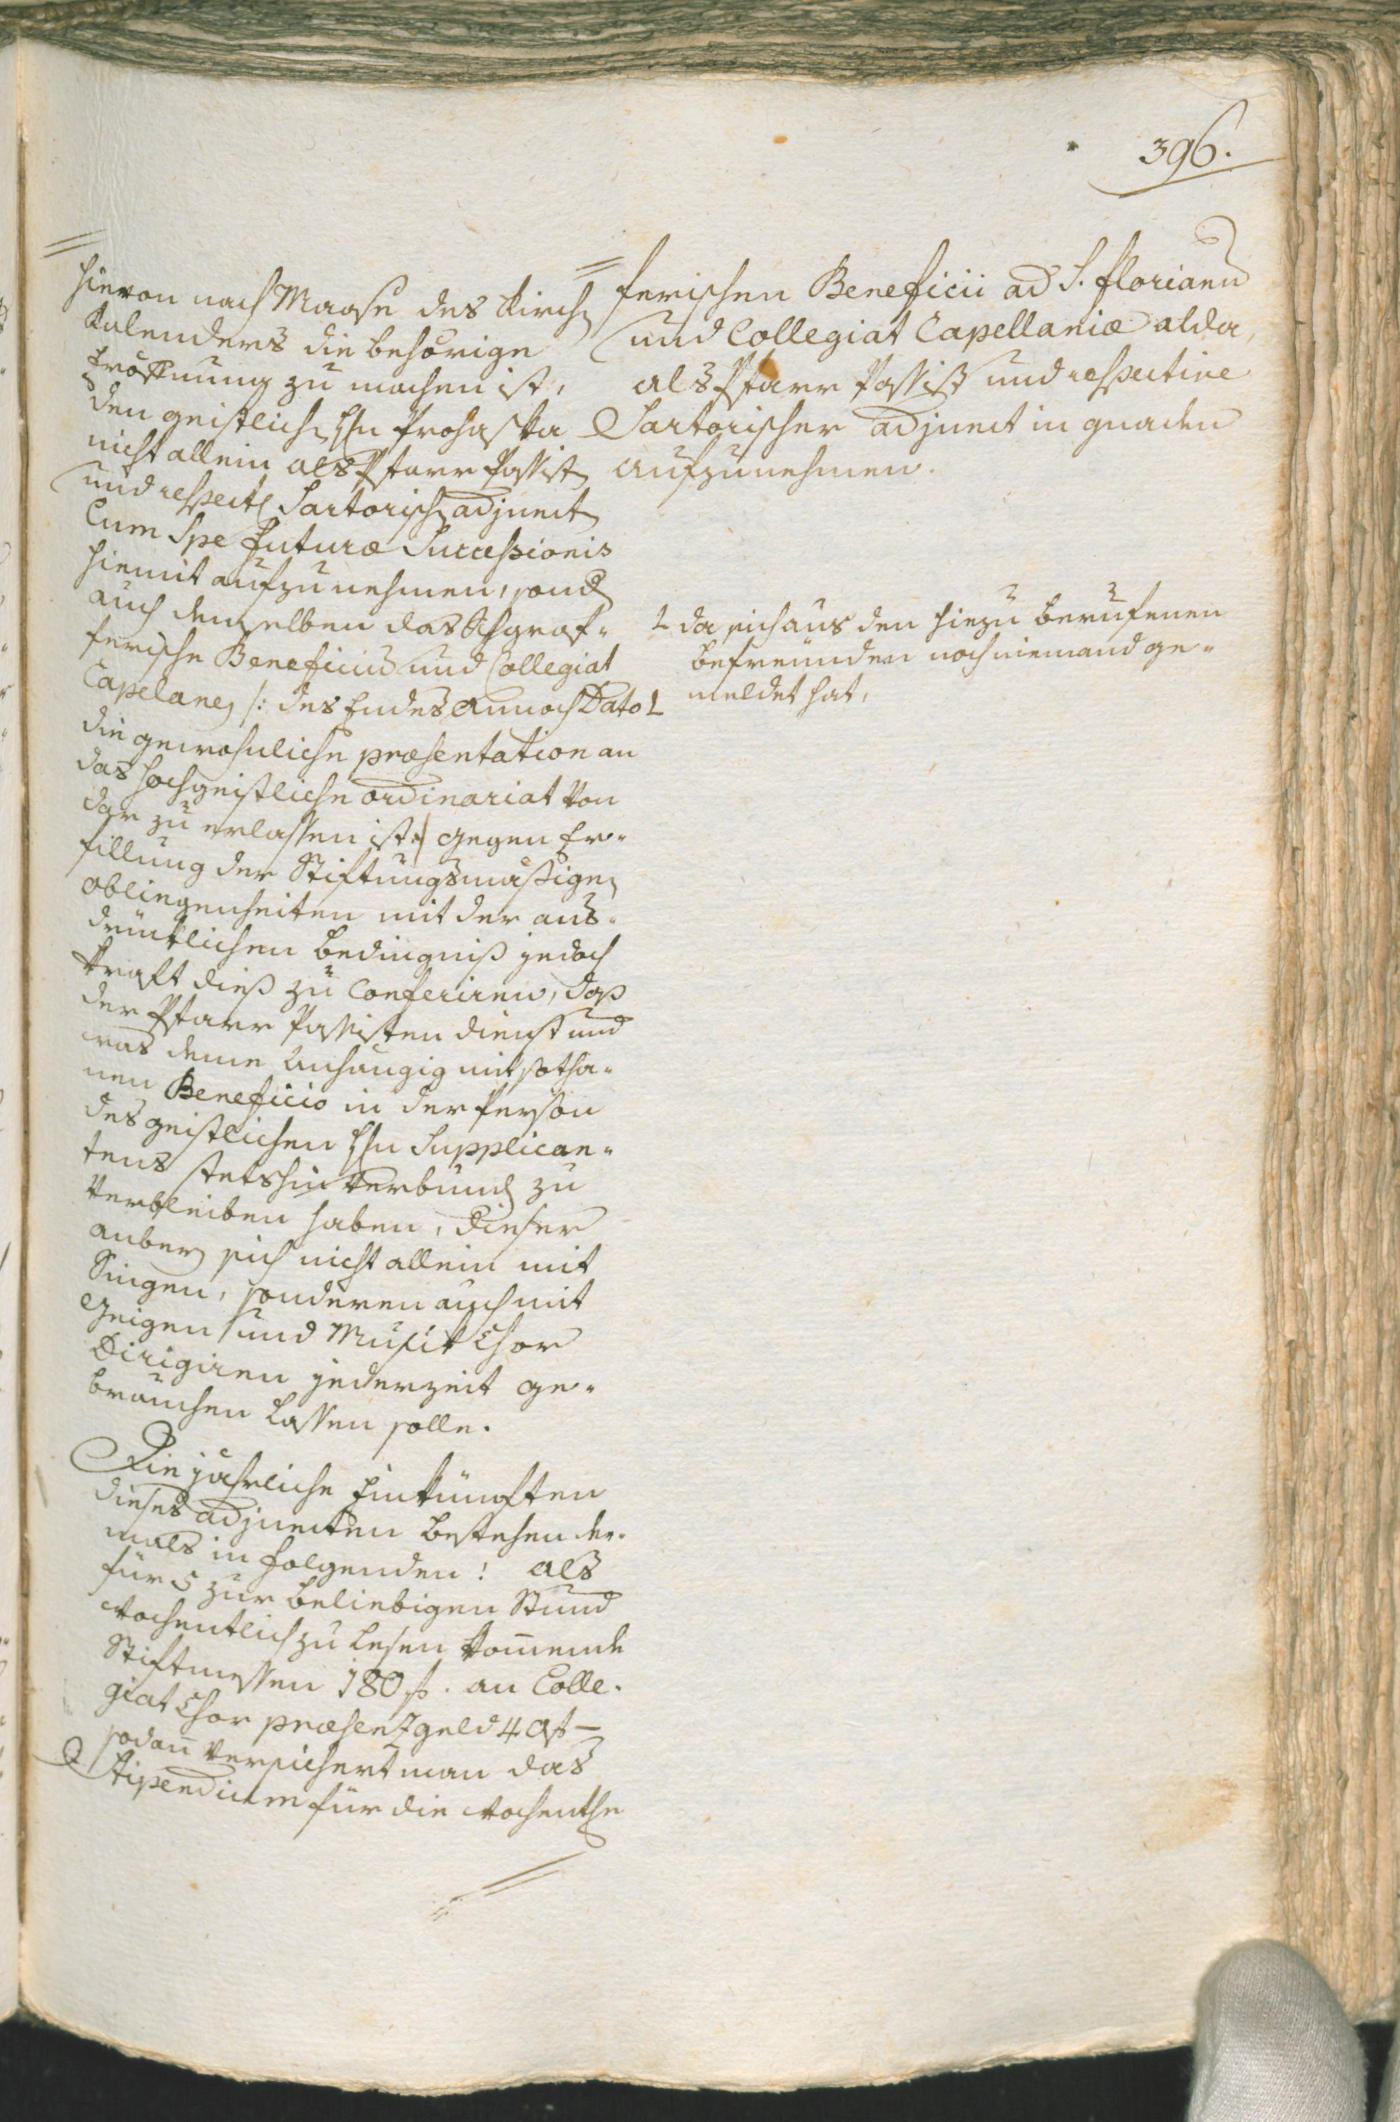 396.
hievon nach Maase des Kirchen
Kalenders die behörige
Eröffnung zu machen ist,
den geistlichen Hn Prohaska
nicht allein als Pfarr Passist
und respect: Sartorischen adjunct
Cum Spe futuræ Successionis
hiemit aufzunehmen, sond
auch demselben das Schgraf¬
ferische Beneficium und Collegiat
Capelaney /: des Endes annoch Dato L
die gewohnliche præsentation an
das hochgeistliche ordinariat von
dar zu erlassen ist :/ gegen Er¬
füllung der Stiftungsmäßigen
obliegenheiten mit der aus¬
drücklichen Bedingniß jedoch
kraft dieß zu Conferiren, daß
der Pfarr Passisten dienst und
was deme anhängig mit sotha¬
nen Beneficio in der Person
des geistlichen Hn Supplican¬
tens stetshin verbund zu
verbleiben haben, dieser
anbey sich nicht allein mit
Singen, sonderen auch mit
Geigen und Musik Chor
Dirigiren jederzeit ge¬
brauchen lassen solle.
Die jährliche Einkünften
dieses adjuncten bestehen der¬
mals in folgenden: als
für 5 zur beliebigen Stund
wochentlich zu lesen komende
Stiftmessen 180 f. an Colle¬
giat Chor præsenzgeld 40 f —
sodan versichert man das
Stipendium für die wochentl
ferischen Beneficii ad S. florianu
und Collegiat Capellaniæ alda,
als Pfarr Passist und respective
Sartorischer adjunct in gnaden
aufzunehmen.
L da sich aus den hiezu berufenen
befreunden noch niemand ge¬
meldet hat,